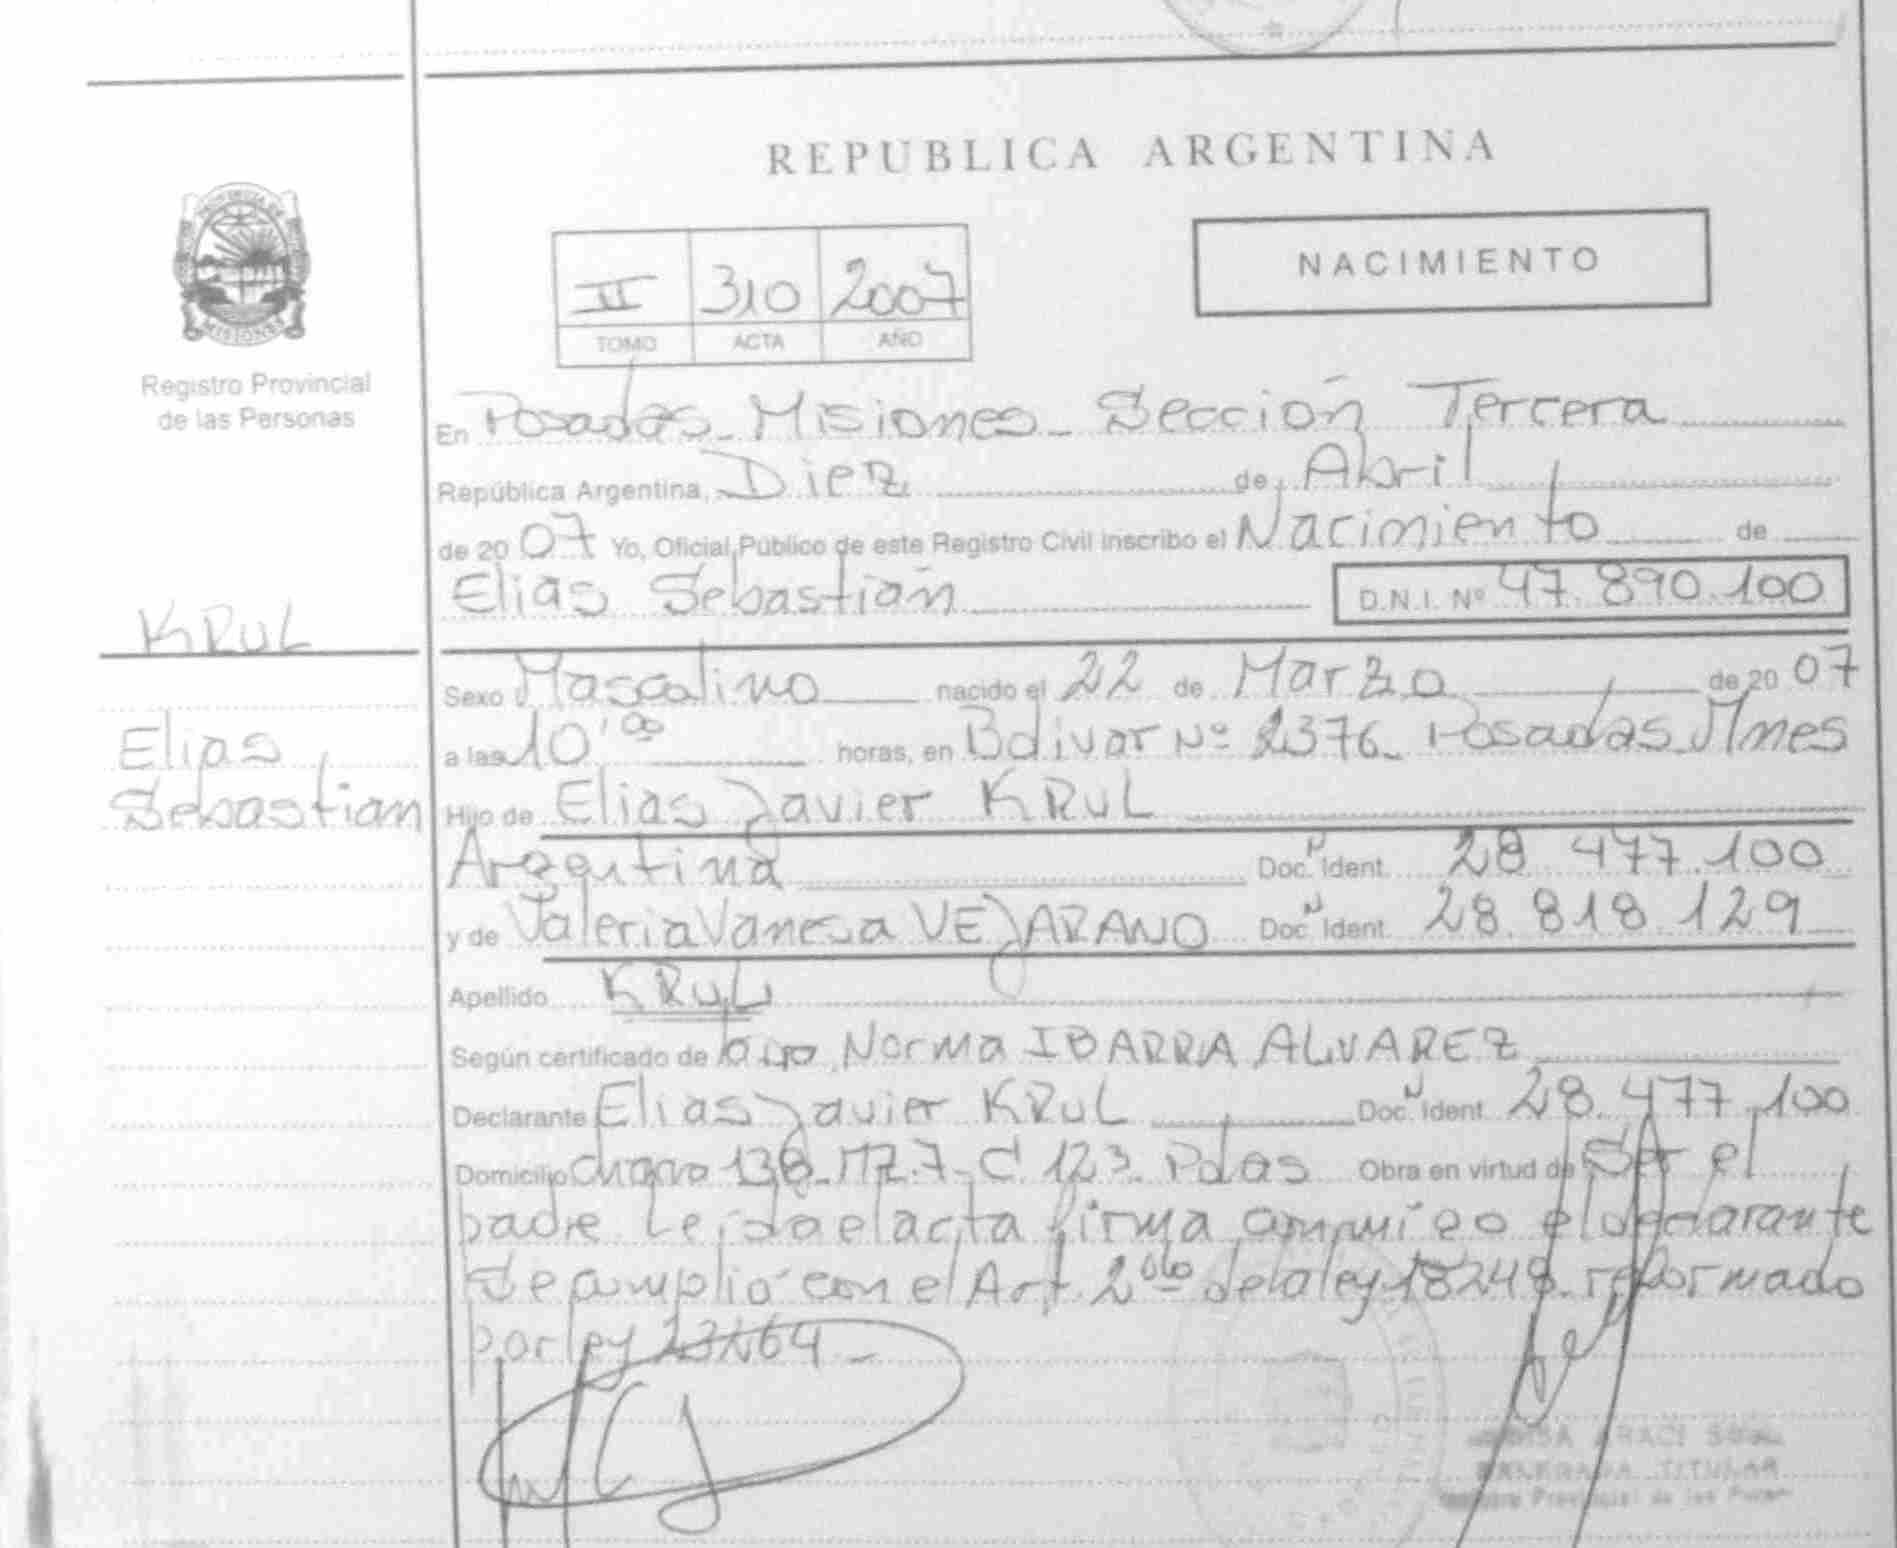 REPUBLICA ARGENTINA
NACIMIENTO
II 310 2007
TOMO ACTA AÑO
MISIONES
Registro Provincial
de las Personas
En Posadas - Misiones - Sección Tercera
República Argentina, Diez de Abril
de 2007 Yo, Oficial Público de este Registro Civil inscribo el Nacimiento de
Elias Sebastián D.N.I. Nº 47.890.100
KRUL
Sexo Masculino nacido el 22 de Marzo de 2007
Elias
a las 10'00 horas, en Bolivar Nº 2376- Posadas Mnes
Sebastian
Hijo de Elias Javier KRUL
Argentina Doc. N Ident. 28 477.100
y de Valeria Vanesa VEJARANO Doc. N Ident. 28.818.129
Apellido KRUL
Según certificado de Norma IBARRA ALVAREZ
Declarante Elias Javier KRUL Doc. N Ident. 28.477.100
Domicilio Chacra 138- MZ.7- C 123 Pdas Obra en virtud de Ser el
padre Leida el acta firma conmigo el declarante
Se cumplió con el Art. 2do de la ley 18248 reformado
por ley 23264 -
ARACI
DELEGADA TITULAR
Provincial de las